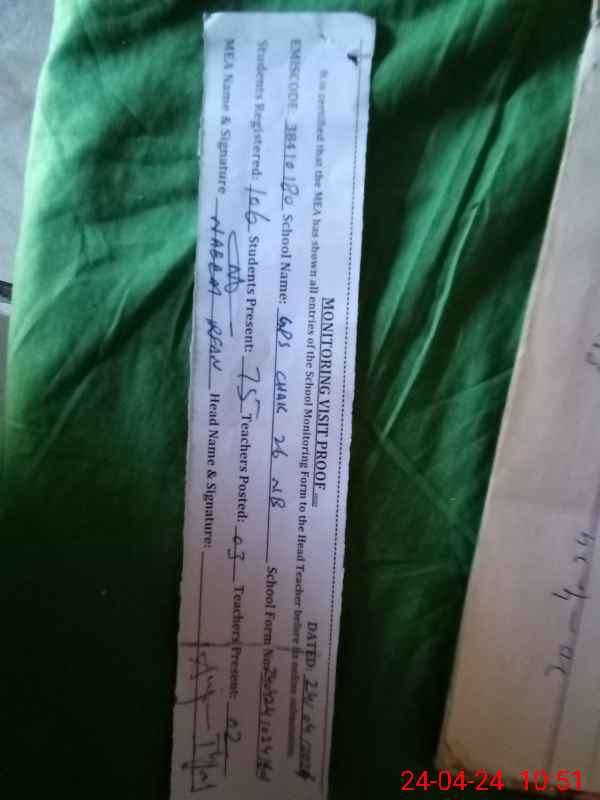 MONITORING VISIT PROOF
DATED: 24/04/2024
It is certified that the MEA has shown all entries of the School Monitoring Form to the Head Teacher before its online submission.
EMISCODE: 38410180 School Name: GPS CHAK 26 NB School Form No:
Students Registered: 106 Students Present: 75 Teachers Posted: 03 Teachers Present: 02
MEA Name & Signature Head Name & Signature:
24-04-24 10:51